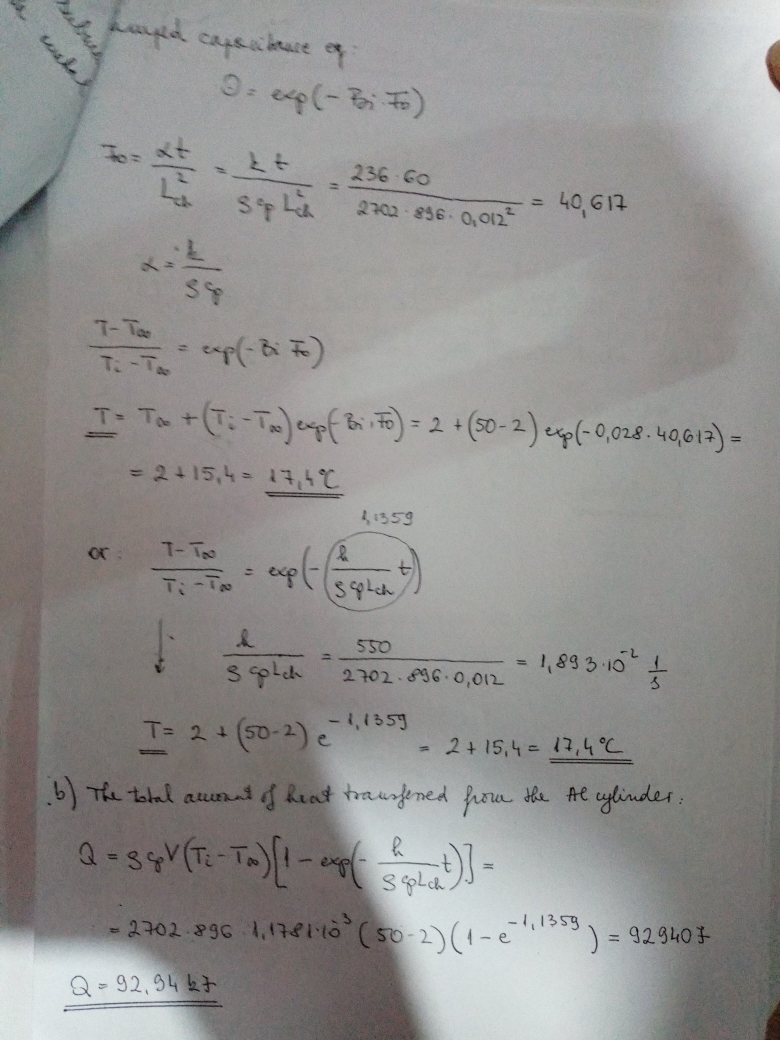 lumped capacitance eq:
Θ = exp(- Bi·Fo)
Fo = αt / L²ch = k t / ρ cp L²ch = 236·60 / 2702·896·0,012² = 40,617
α = k / ρ cp
T-T∞ / Ti-T∞ = exp(-Bi Fo)
T = T∞ + (Ti-T∞) exp(-Bi.Fo) = 2 + (50-2) exp(-0,028·40,617) =
= 2 + 15,4 = 17,4°C
1,1359
or: T-T∞ / Ti-T∞ = exp(- h / ρ cp Lch t)
↓ h / ρ cp Lch = 550 / 2702·896·0,012 = 1,893·10⁻² 1/s
T = 2 + (50-2) e^-1,1359 = 2 + 15,4 = 17,4°C
b) The total amount of heat transferred from the Al cylinder:
Q = ρ cp V (Ti-T∞)[1 - exp(- h / ρ cp Lch t)] =
= 2702·896·1,1781·10⁻³ (50-2)(1-e^-1,1359) = 92940 J
Q = 92,94 kJ